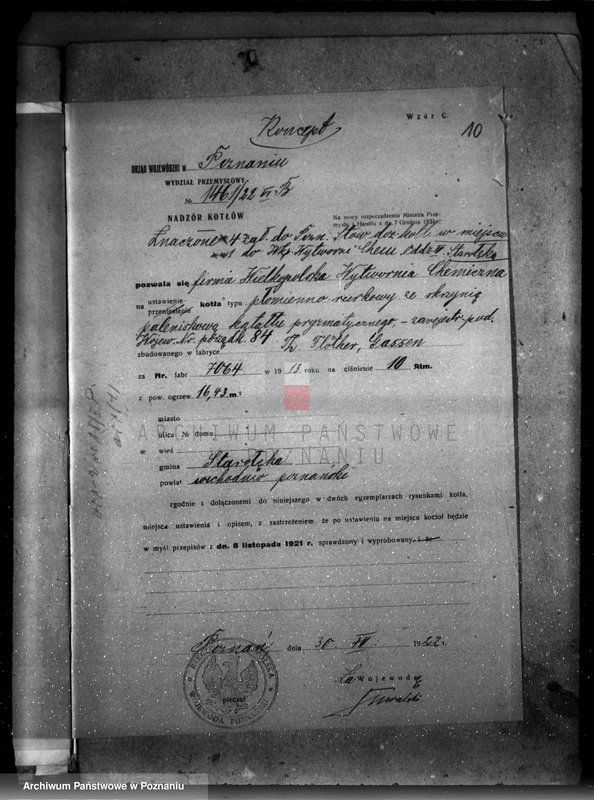 Wzór C.
Koncept
10
URZĄD WOJEWÓDZKI w Poznaniu
WYDZIAŁ PRZEMYSŁOWY
№ 1461/22 VI B
NADZÓR KOTŁÓW
Na mocy rozporządzenia Ministra Prze-
mysłu i Handlu z d. 7 Grudnia 1921 r.
4 zał. do Stow. doz. kotł. w miejscu
1 do Wlkp. Wytworni Chem. oddz. Starołęka
pozwala się firmie Wielkopolska Wytwornia Chemiczna
na ustawienie
przeniesienie kotła typu płomienno rurkowy ze skrzynią
paleniskową kształtu pryzmatycznego, - zarejestr. pod.
Wojew. Nr. porządk. 84
zbudowanego w fabryce Th. Flöther, Gassen
za Nr. fabr 7064 w 1913 roku na ciśnienie 10 Atm.
z pow. ogrzew. 16,43 m²
miasto
ulica Nr. domu
w wieś
gmina Starołęka
powiat wschodnio poznański
zgodnie z dołączonemi do niniejszego w dwóch egzemplarzach rysunkami kotła,
miejsca ustawienia i opisem, z zastrzeżeniem, że po ustawieniu na miejscu kocioł będzie
w myśl przepisów z dn. 8 listopada 1921 r. sprawdzony i wypróbowany
Poznań dnia 30 VII 1922 r.
Za Wojewodę
pieczęć
WOJEWODA POZNAŃSKI
ARCHIWUM PAŃSTWOWE
W POZNANIU
Archiwum Państwowe w Poznaniu